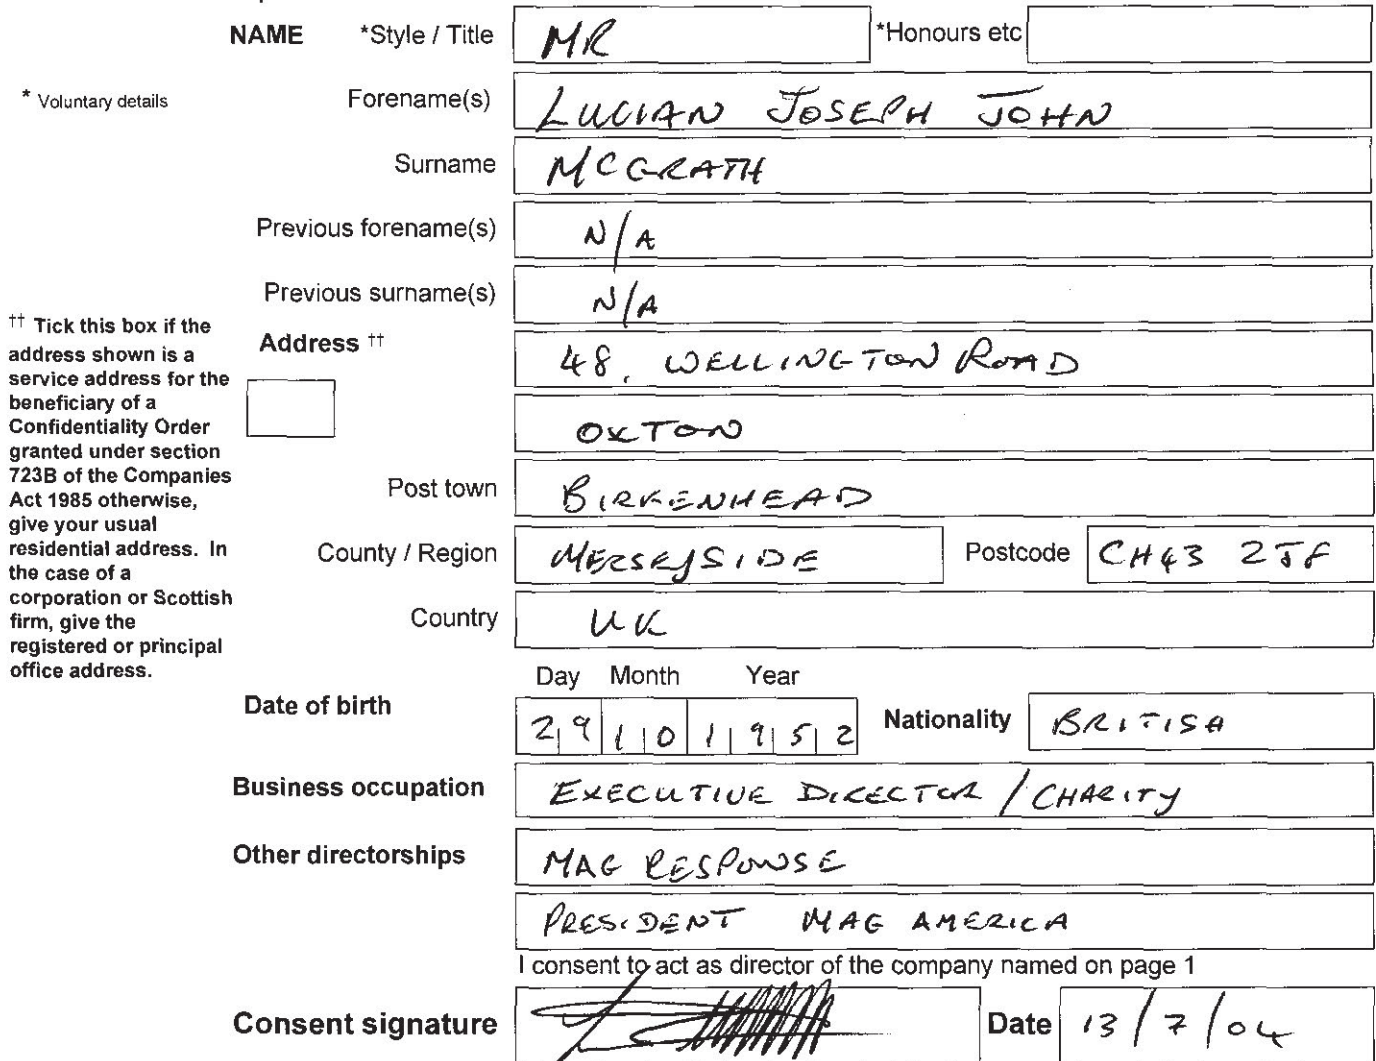 NAME *Style / Title MR *Honours etc
* Voluntary details Forename(s) LUCIAN JOSEPH JOHN
Surname MCGRATH
Previous forename(s) N/A
Previous surname(s) N/A
†† Tick this box if the
address shown is a
service address for the
beneficiary of a
Confidentiality Order
granted under section
723B of the Companies
Act 1985 otherwise,
give your usual
residential address. In
the case of a
corporation or Scottish
firm, give the
registered or principal
office address.
Address †† 48, WELLINGTON ROAD
OXTON
Post town BIRKENHEAD
County / Region MERSEYSIDE Postcode CH43 2JF
Country UK
Day Month Year
Date of birth 29 10 1952 Nationality BRITISH
Business occupation EXECUTIVE DIRECTOR / CHARITY
Other directorships MAG RESPONSE
PRESIDENT MAG AMERICA
I consent to act as director of the company named on page 1
Consent signature Date 13/7/04